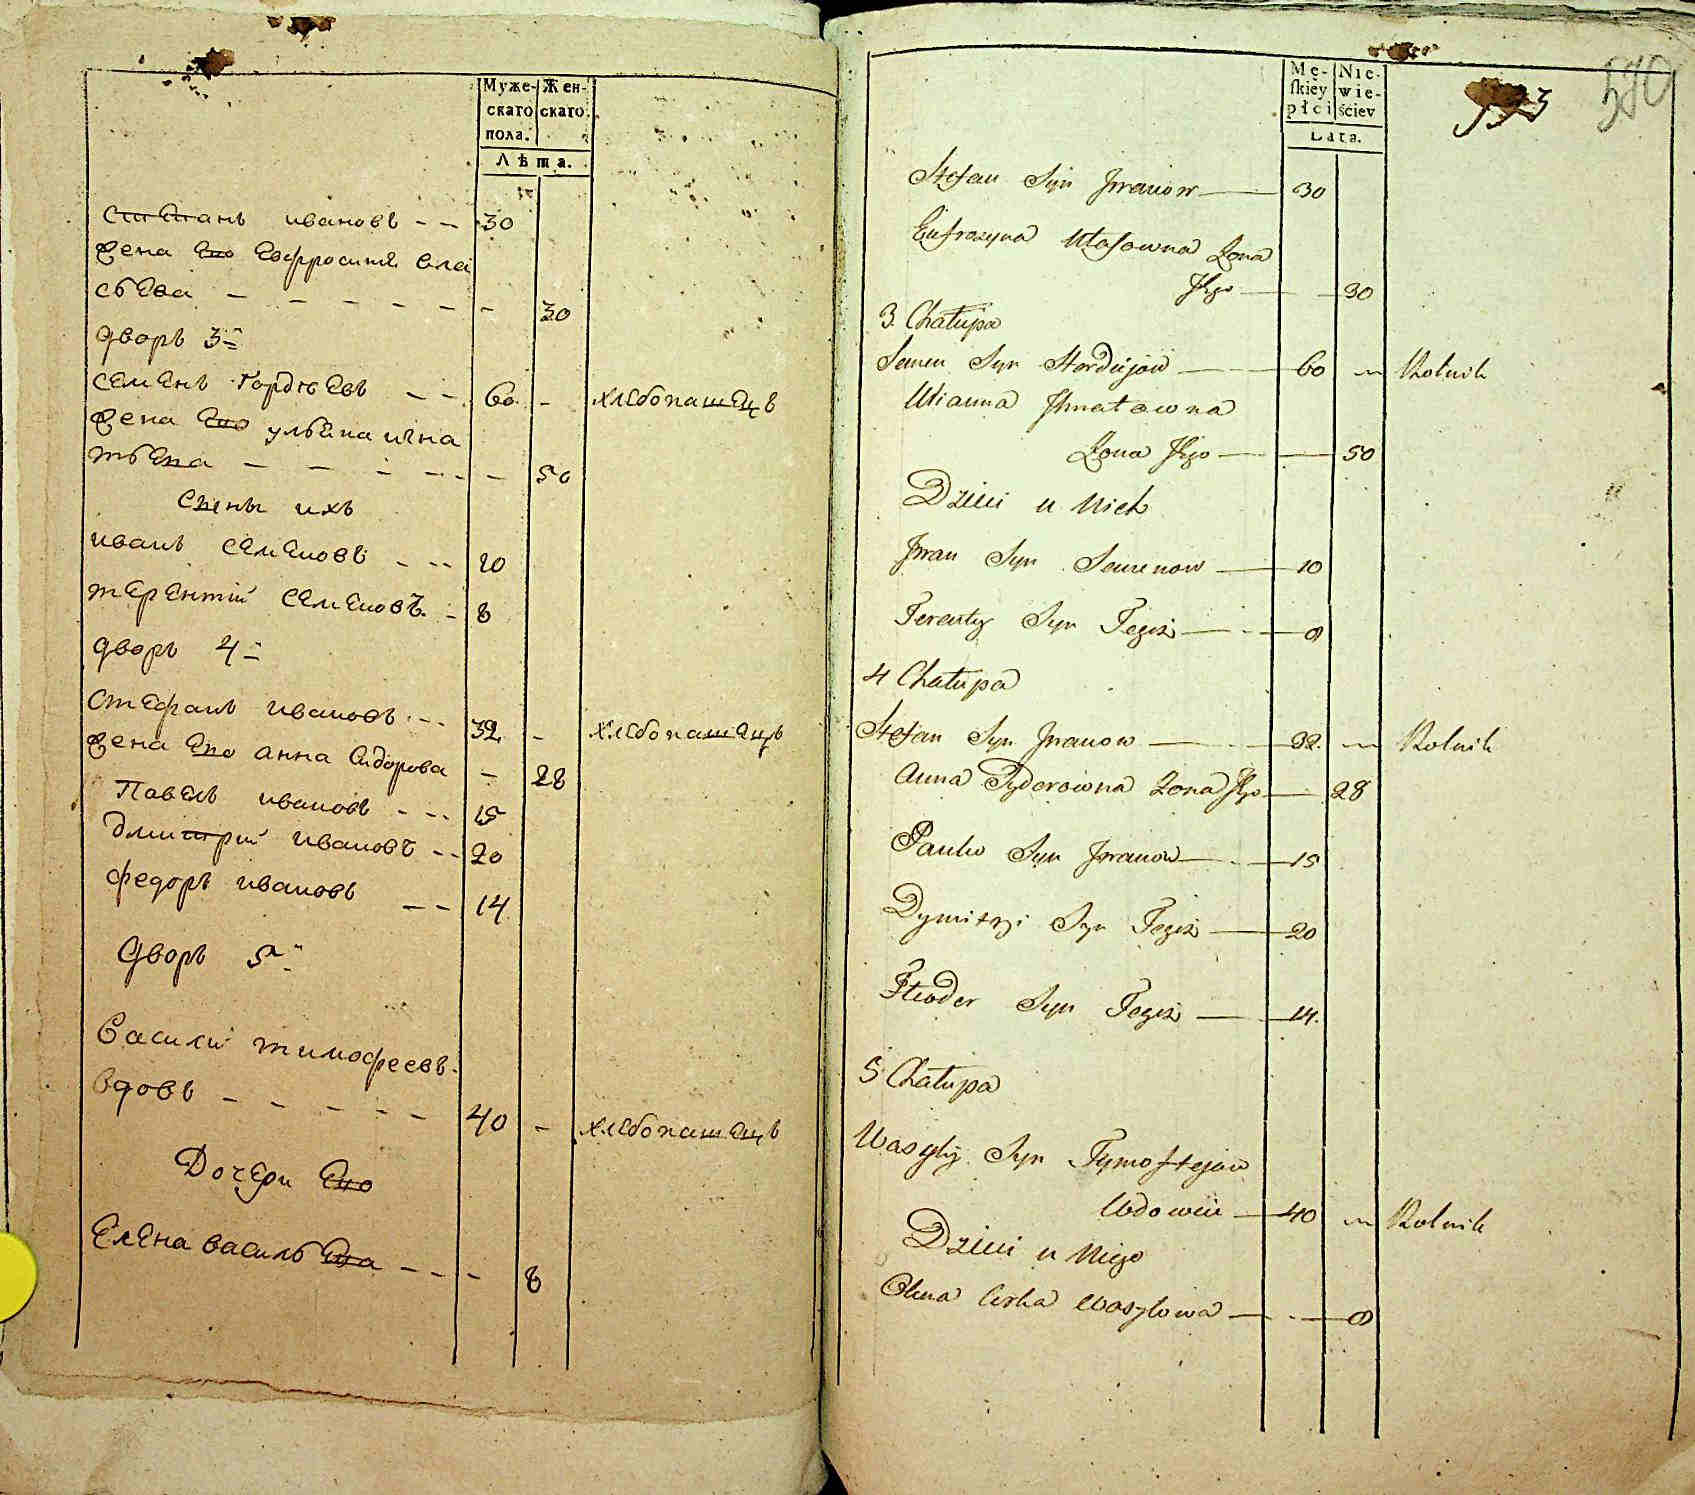 Муже-
скаго
пола.
Жен-
скаго
Лѣта.
степанъ ивановъ - - 30
жена его Евфросиня вла
сьева - - - - - - 30
дворъ 3й
семенъ гордѣевъ - - 60 - хлебопашецъ
жена его ульяна игна
тьева - - - - - - 50
сыны ихъ
иванъ семеновъ - - - 10
терентий семеновъ - 8
дворъ 4й
стефанъ ивановъ - - 32 - хлебопашецъ
жена его анна сидорова - 28
Павелъ ивановъ - - - 15
дмитрий ивановъ - - 20
федоръ ивановъ - - 14
дворъ 5й
василий тимофеевъ
вдовъ - - - - - 40 - хлебопашецъ
Дочери его
Елена васильева - - - 8
Mę-
skiey
płci
Nie-
wie-
ściey
Lata.
593
590
Stefan Syn Iwanow 30
Eufrozyna Ułasowna Żona
Jego 30
3 Chałupa
Semen Syn Hordiejow 60 Rolnik
Ulianna Ihnatowna
Żona Jego 50
Dzieci u Nich
Iwan Syn Semenow 10
Terenty Syn Tegoż 8
4 Chałupa
Stefan Syn Iwanow 32 Rolnik
Anna Sydorowna Żona Jego 28
Pawło Syn Iwanow 15
Dymitry Syn Tegoż 20
Fteoder Syn Tegoż 14.
5 Chałupa
Wasyly Syn Tymoftejow
Wdowiec 40 Rolnik
Dzieci u Niego
Olena Corka Wasylowa 8